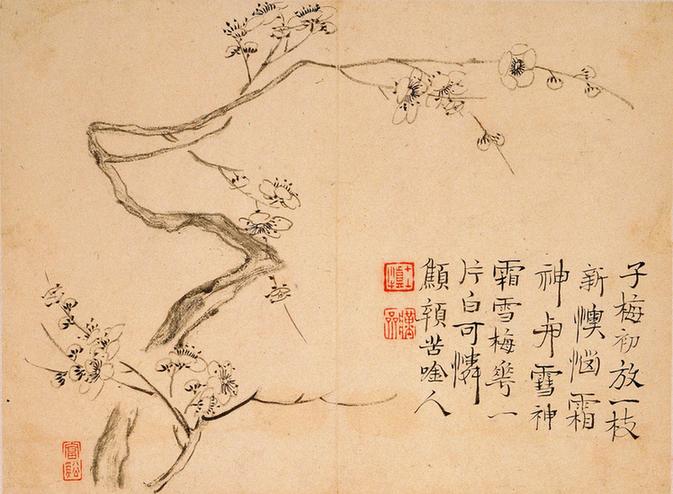 子梅初放一枝
新懊惱霜
神與雪神
霜雪梅華一
片白可憐
顦顇苦唫人